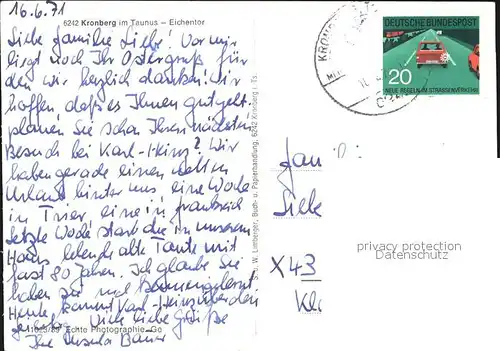 16.6.71
6242 Kronberg im Taunus – Eichentor
Liebe Familie Liebe! Vor mir
liegt noch Ihr Ostergruß für
den wir herzlich danken! Wir
hoffen daß es Ihnen gut geht.
planen Sie schon Ihren nächsten
Besuch bei Karl-Heinz? Wir
haben gerade einen
Urlaub hinter uns eine Woche
in Trier, eine in Frankreich
letzte Woche starb die in unserem
Haus lebende alte Tante mit
fast 80 Jahren. Ich glaube Sie
haben sie noch kennengelernt.
Heute kommt Karl-Heinz über den
Viele liebe Grüße
Ihre Ursula
Echte Photographie
Lumberger, Buch- u. Papierhandlung, 6242 Kronberg i. Ts.
KRON
DEUTSCHE BUNDESPOST
20
NEUE REGELN IM STRASSENVERKEHR
Fam
Liebe
X43
Kl
privacy protection
Datenschutz